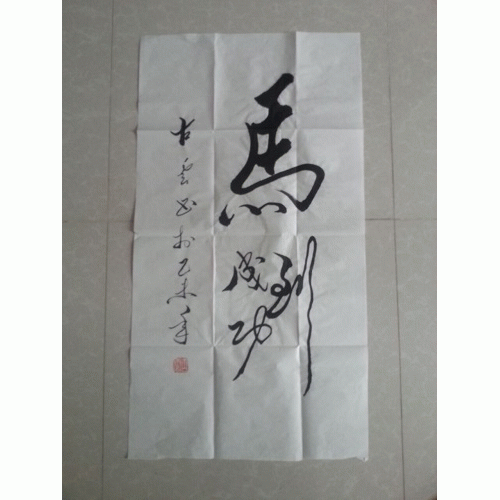 馬到成功
古雲書於乙未年